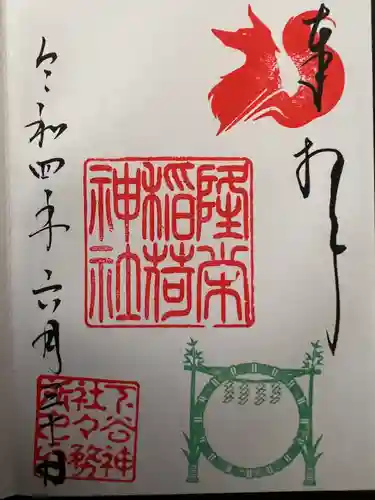 奉拝
隆栄
稲荷
神社
令和四年六月三十日
下谷神
社々務
所之印